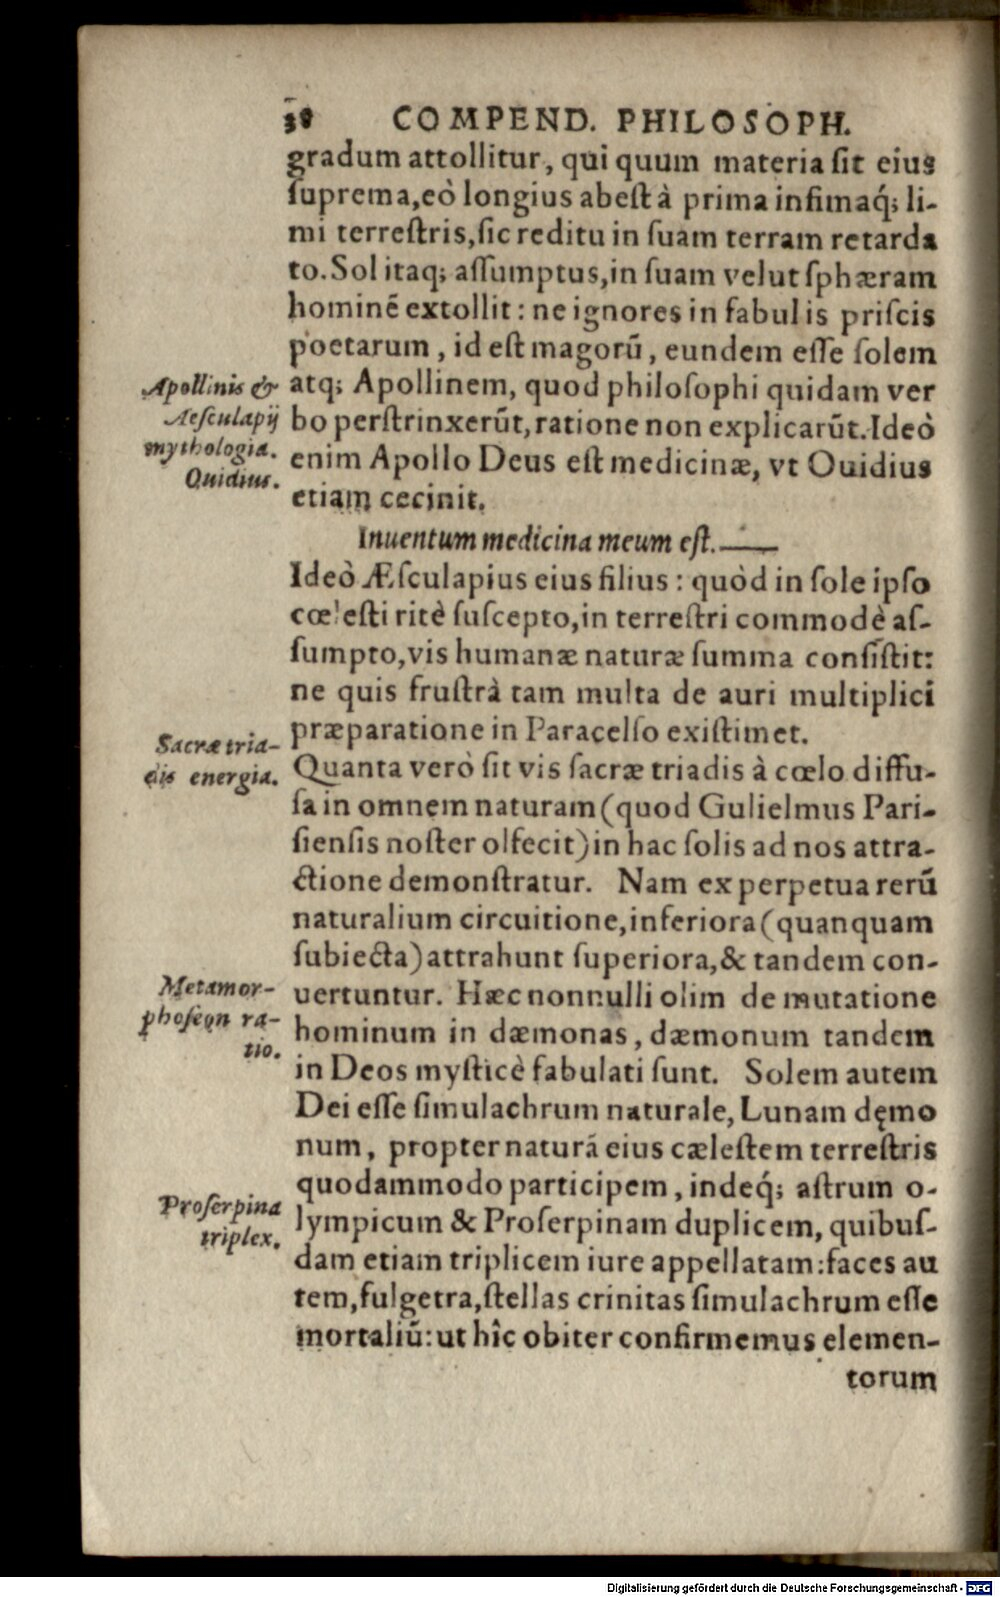 38 COMPEND. PHILOSOPH.
gradum attollitur, qui quum materia sit eius
suprema,eò longius abest à prima infimaq́; li-
mi terrestris,sic reditu in suam terram retarda
to.Sol itaq; assumptus,in suam velut sphæram
hominẽ extollit: ne ignores in fabulis priscis
poetarum, id est magorũ, eundem esse solem
Apollinis & atq; Apollinem, quod philosophi quidam ver
Aesculapij bo perstrinxerũt,ratione non explicarũt.Ideò
mythologia. enim Apollo Deus est medicinæ, vt Ouidius
Ouidius. etiam cecinit.
Inuentum medicina meum est.——
Ideò Æsculapius eius filius: quòd in sole ipso
cœlesti ritè suscepto,in terrestri commodè as-
sumpto,vis humanæ naturæ summa consistit:
ne quis frustrà tam multa de auri multiplici
præparatione in Paracelso existimet.
Sacræ tria- Quanta verò sit vis sacræ triadis à cœlo diffu-
dis energia. sa in omnem naturam(quod Gulielmus Pari-
siensis noster olfecit)in hac solis ad nos attra-
ctione demonstratur. Nam ex perpetua rerũ
naturalium circuitione,inferiora(quanquam
subiecta)attrahunt superiora,& tandem con-
Metamor- uertuntur. Hæc nonnulli olim de mutatione
phoseωn ra- hominum in dæmonas, dæmonum tandem
tio. in Deos mysticè fabulati sunt. Solem autem
Dei esse simulachrum naturale, Lunam dęmo
num, propter naturã eius cælestem terrestris
quodammodo participem, indeq́; astrum o-
Proserpina lympicum & Proserpinam duplicem, quibus-
triplex. dam etiam triplicem iure appellatam:faces au
tem,fulgetra,stellas crinitas simulachrum esse
mortaliũ:ut hîc obiter confirmemus elemen-
torum
Digitalisierung gefördert durch die Deutsche Forschungsgemeinschaft - DFG